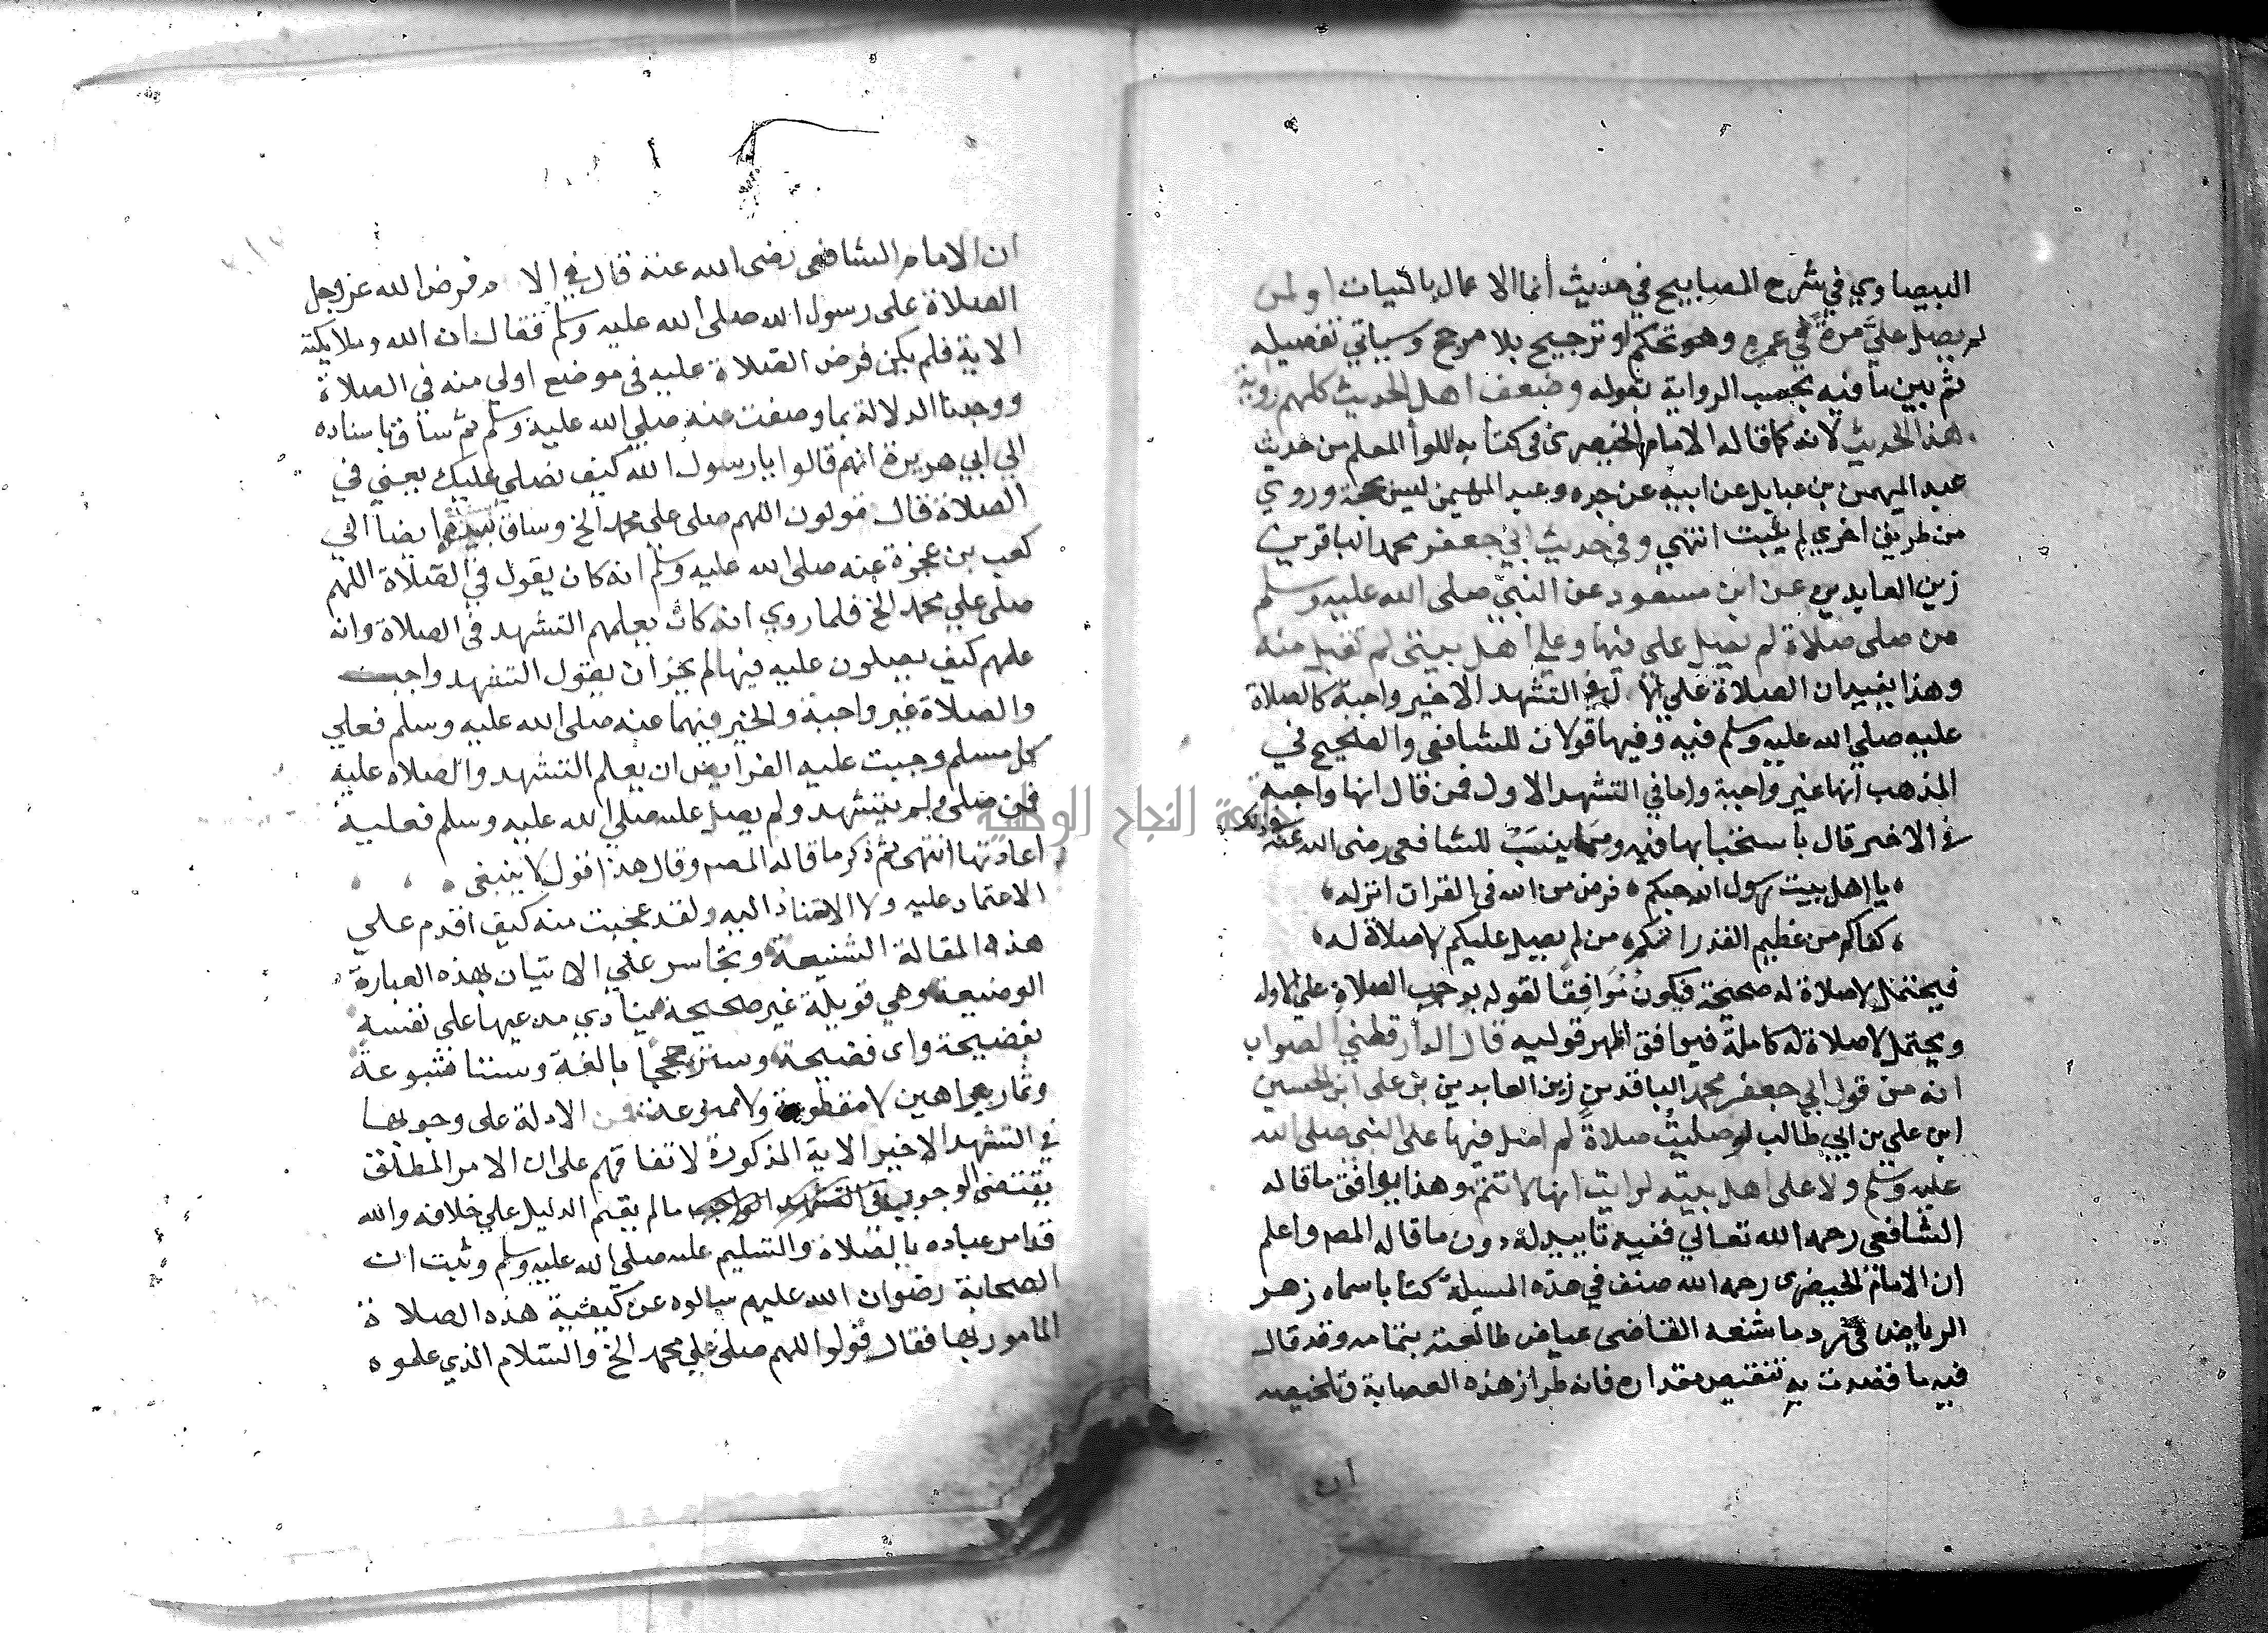 البيضاوي في شرح المصابيح في حديث انما الاعمال بالنيات او لمن
لم يصل عليّ مرة في عمره وهو تحكم او ترجيح بلا مرجح وسياتي تفصيله
ثم بين ما فيه بحسب الرواية بقوله وضعف اهل الحديث كلهم رواية
هذا الحديث لانه كما قاله الامام الخيضري في كتابه اللوا المعلم من حديث
عبد المهيمن بن عباس عن ابيه عن جده وعبد المهيمن ليس بحجة وروي
من طريق اخري لم يثبت انتهي وفي حديث ابي جعفر محمد الباقر بن
زين العابدين عن ابن مسعود عن النبي صلي الله عليه وسلم
من صلي صلاة لم يصل علي فيها وعلي اهل بيتي لم تقبل منه
وهذا يفيد ان الصلاة علي الال في التشهد الاخير واجبة كالصلاة
عليه صلي الله عليه وسلم فيه وفيها قولان للشافعي والصحيح في
المذهب انها غير واجبة واما في التشهد الاول فمن قال انها واجبة
في الاخير قال باستحبابها فيه ومما ينسب للشافعي رضي الله عنه
يا اهل بيت رسول الله حبكم فرض من الله في القران انزله
كفاكم من عظيم القدر انكم من لم يصل عليكم لا صلاة له
فيحتمل لا صلاة له صحيحة فيكون مُوَافِقًا لقوله بوجوب الصلاة علي الاول
ويحتمل لا صلاة له كاملة فيوافق اظهر قوليه قال الدارقطني الصواب
انه من قول ابي جعفر محمد الباقر بن زين العابدين بن علي ابن الحسين
ابن علي بن ابي طالب لو صليتُ صلاةً لم اصل فيها علي النبي صلي الله
عليه وسلم ولا علي اهل بيته لرايت انها لا تتم وهذا يوافق ما قاله
الشافعي رحمه الله تعالي ففيه تاييد له دون ما قاله المصه واعلم
ان الامام الخيضري رحمه الله صنف في هذه المسيلة كتابا سماه زهر
الرياض في رد ما شنعه القاضي عياض طالعته بتمامه وقد قال
فيه ما قصدت به تنقيص مقداره فانه طراز هذه العصابة وتلخيصه
ان
ان الامام الشافعي رضي الله عنه قال في الام فرض الله عز وجل
الصلاة علي رسول الله صلي الله عليه وسلم فقال ان الله وملايكته
الاية فلم يكن فرض الصلاة عليه في موضع اولي منه في الصلاة
ووجدنا الدلالة بما وصفت عنه صلي الله عليه وسلم ثم ساق باسناده
الي ابي هريرة انهم قالوا يا رسول الله كيف نصلي عليك يعني في
الصلاة قال قولون اللهم صلي علي محمد الخ وساق بسنده ايضا الي
كعب بن عجرة عنه صلي الله عليه وسلم انه كان يقول في الصلاة اللهم
صلي علي محمد الخ فلما روي انه كان يعلمهم التشهد في الصلاة وانه
علمهم كيف يصلون عليه فيها لم يجز ان يقول التشهد واجب
والصلاة غير واجبة والخبر فيهما عنه صلي الله عليه وسلم فعلي
كل مسلم وجبت عليه الفرايض ان يعلم التشهد والصلاه عليه
فمن صلي ولم يتشهد ولم يصل عليه صلي الله عليه وسلم فعليه
اعادتها انتهي ثم ذكر ما قاله المصه وقال هذا قول لا ينبغي
الاعتماد عليه ولا الالتفات اليه ولقد عجبت منه كيف اقدم علي
هذه المقالة الشنيعة وتجاسر علي الاتيان بهذه العبارة
الوضيعة وهي قويلة غير صحيحة ينادي مدعيها علي نفسه
بفضيحة واي فضيحة حججا بالغة وسننا متبوعة
وثمار براهين لا مقطوعة ولا ممنوعة فمن الادلة علي وجوبها
في التشهد الاخير الاية المذكورة لاتفاقهم علي ان الامر المطلق
يقتضي الوجوب ما لم يقم الدليل علي خلافه والله
قد امر عباده بالصلاة والتسليم عليه صلي الله عليه وسلم وثبت ان
الصحابة رضوان الله عليهم سالوه عن كيفية هذه الصلاة
المامور بها فقال قولوا اللهم صلي علي محمد الخ والسلام الذي علموه
جامعة النجاح الوطنية